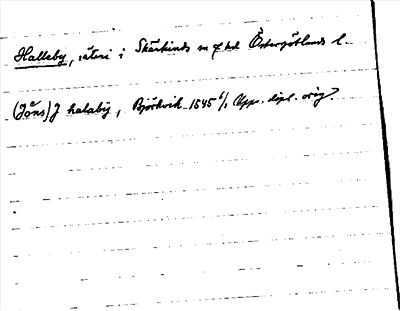 Halleby, säteri i Skärkinds sn o hd Östergötlands l.
(Jöns) J halaby, Björkvik 1545 6/1 Upps. dipl. orig.